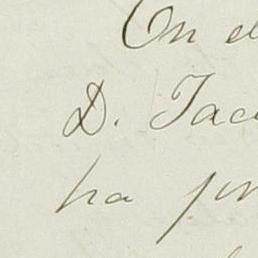 En el
D. Jac
ha pr